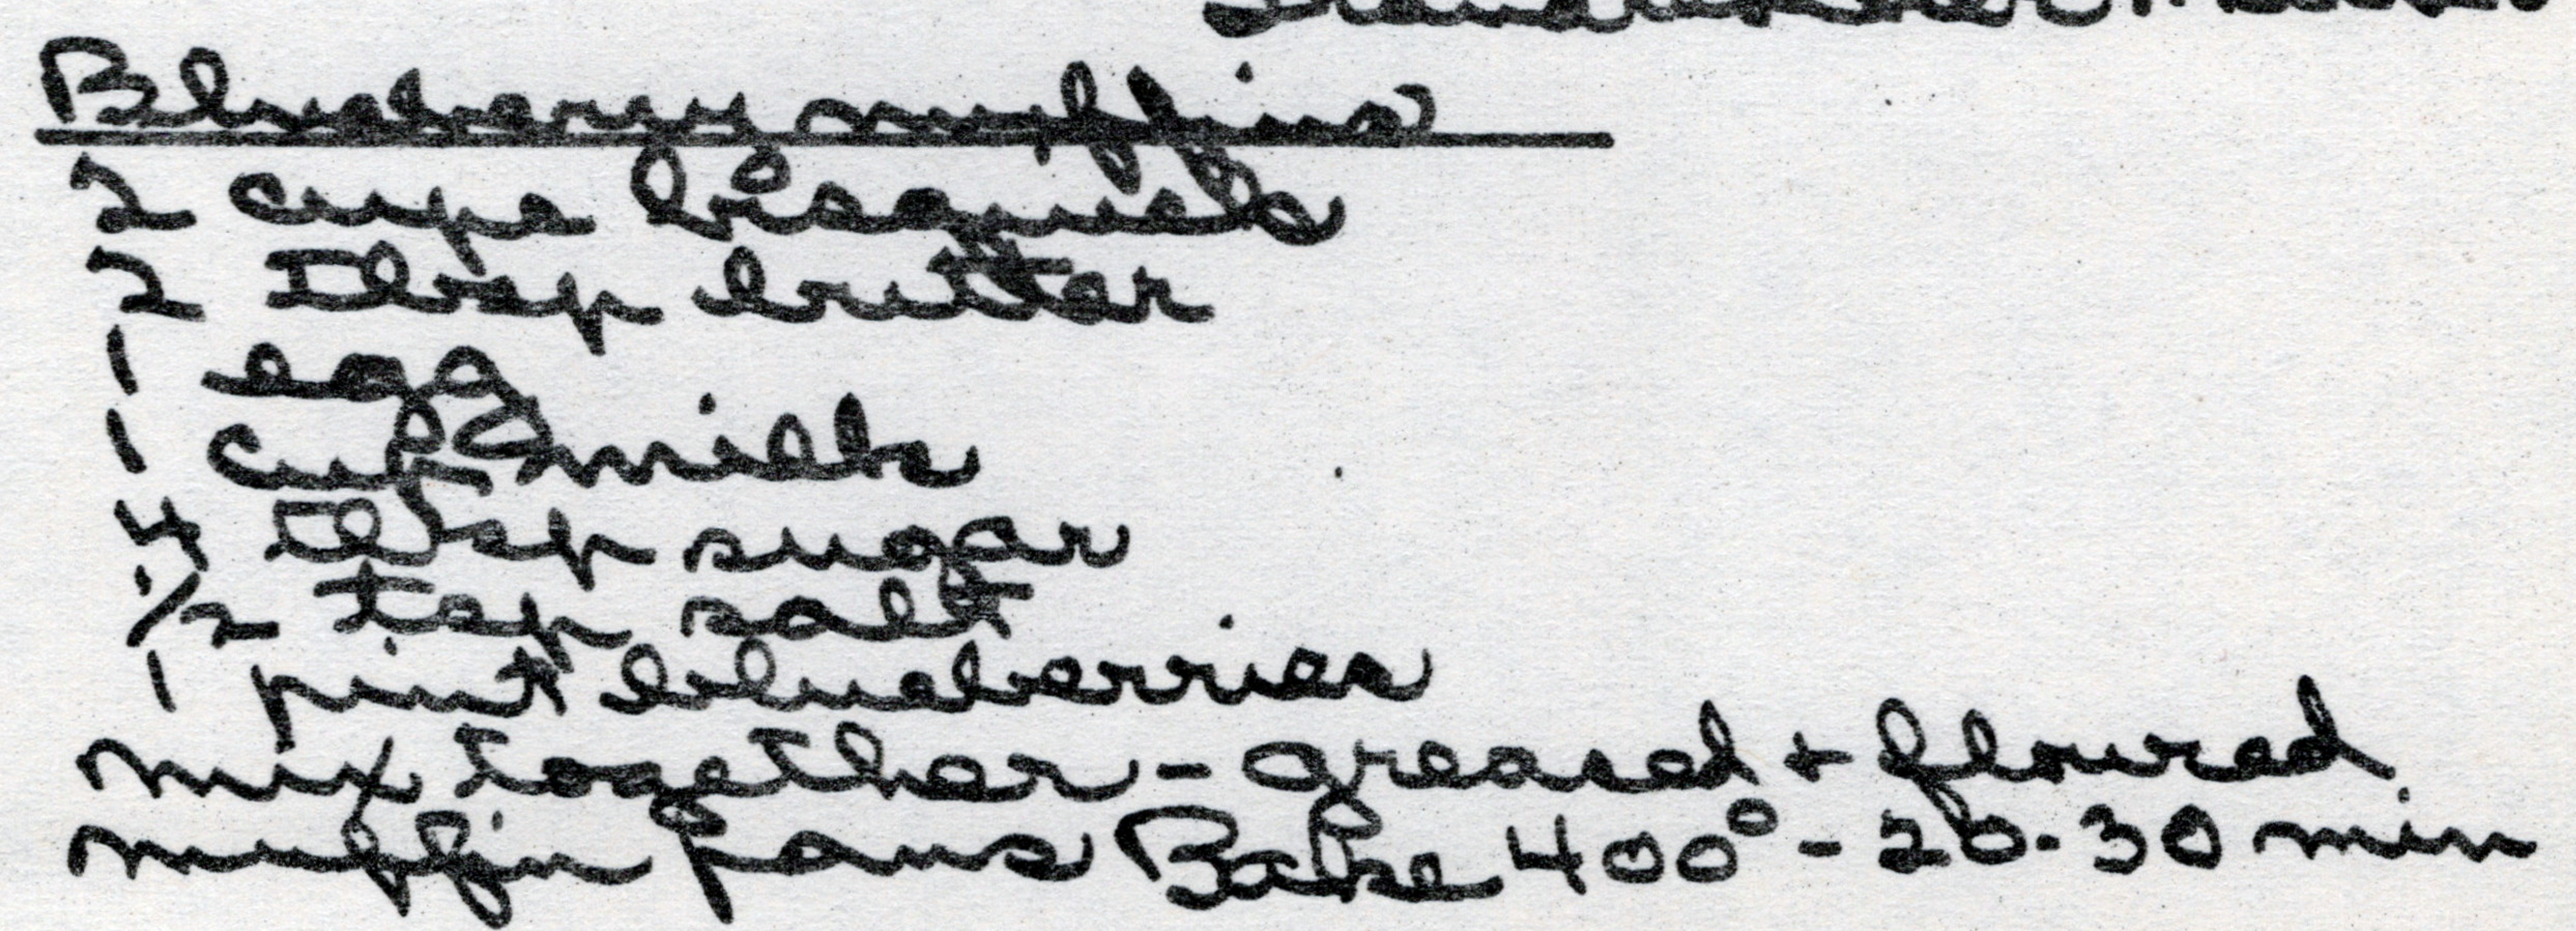 Blueberry muffins
2 cups bisquick
2 Tbsp butter
1 egg
1 cup milk
4 Tbsp sugar
1/2 tsp salt
1 pint blueberries
mix together - greased + floured
muffin pans Bake 400° - 20-30 min